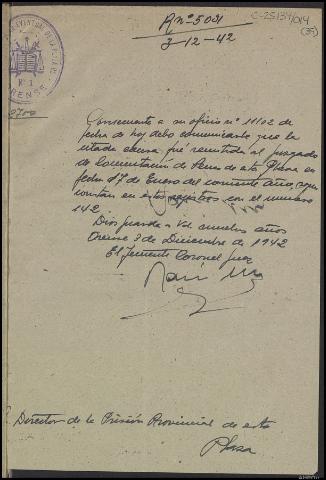 R nº 5001
3-12-42
C-25134/014
ORENSE
Nº 1
Consecuente a su oficio nº 11102 de
fecha de hoy debo comunicarle que la
citada causa fué remitida al juzgado
de Conmutación de Penas de esta Plaza en
fecha 17 de Enero del corriente año, que
constan en estos registros con el número
142.
Dios guarde a Vd. muchos años
Orense 3 de Diciembre de 1942
El Teniente Coronel Juez
Director de la Prisión Provincial de esta
Plaza